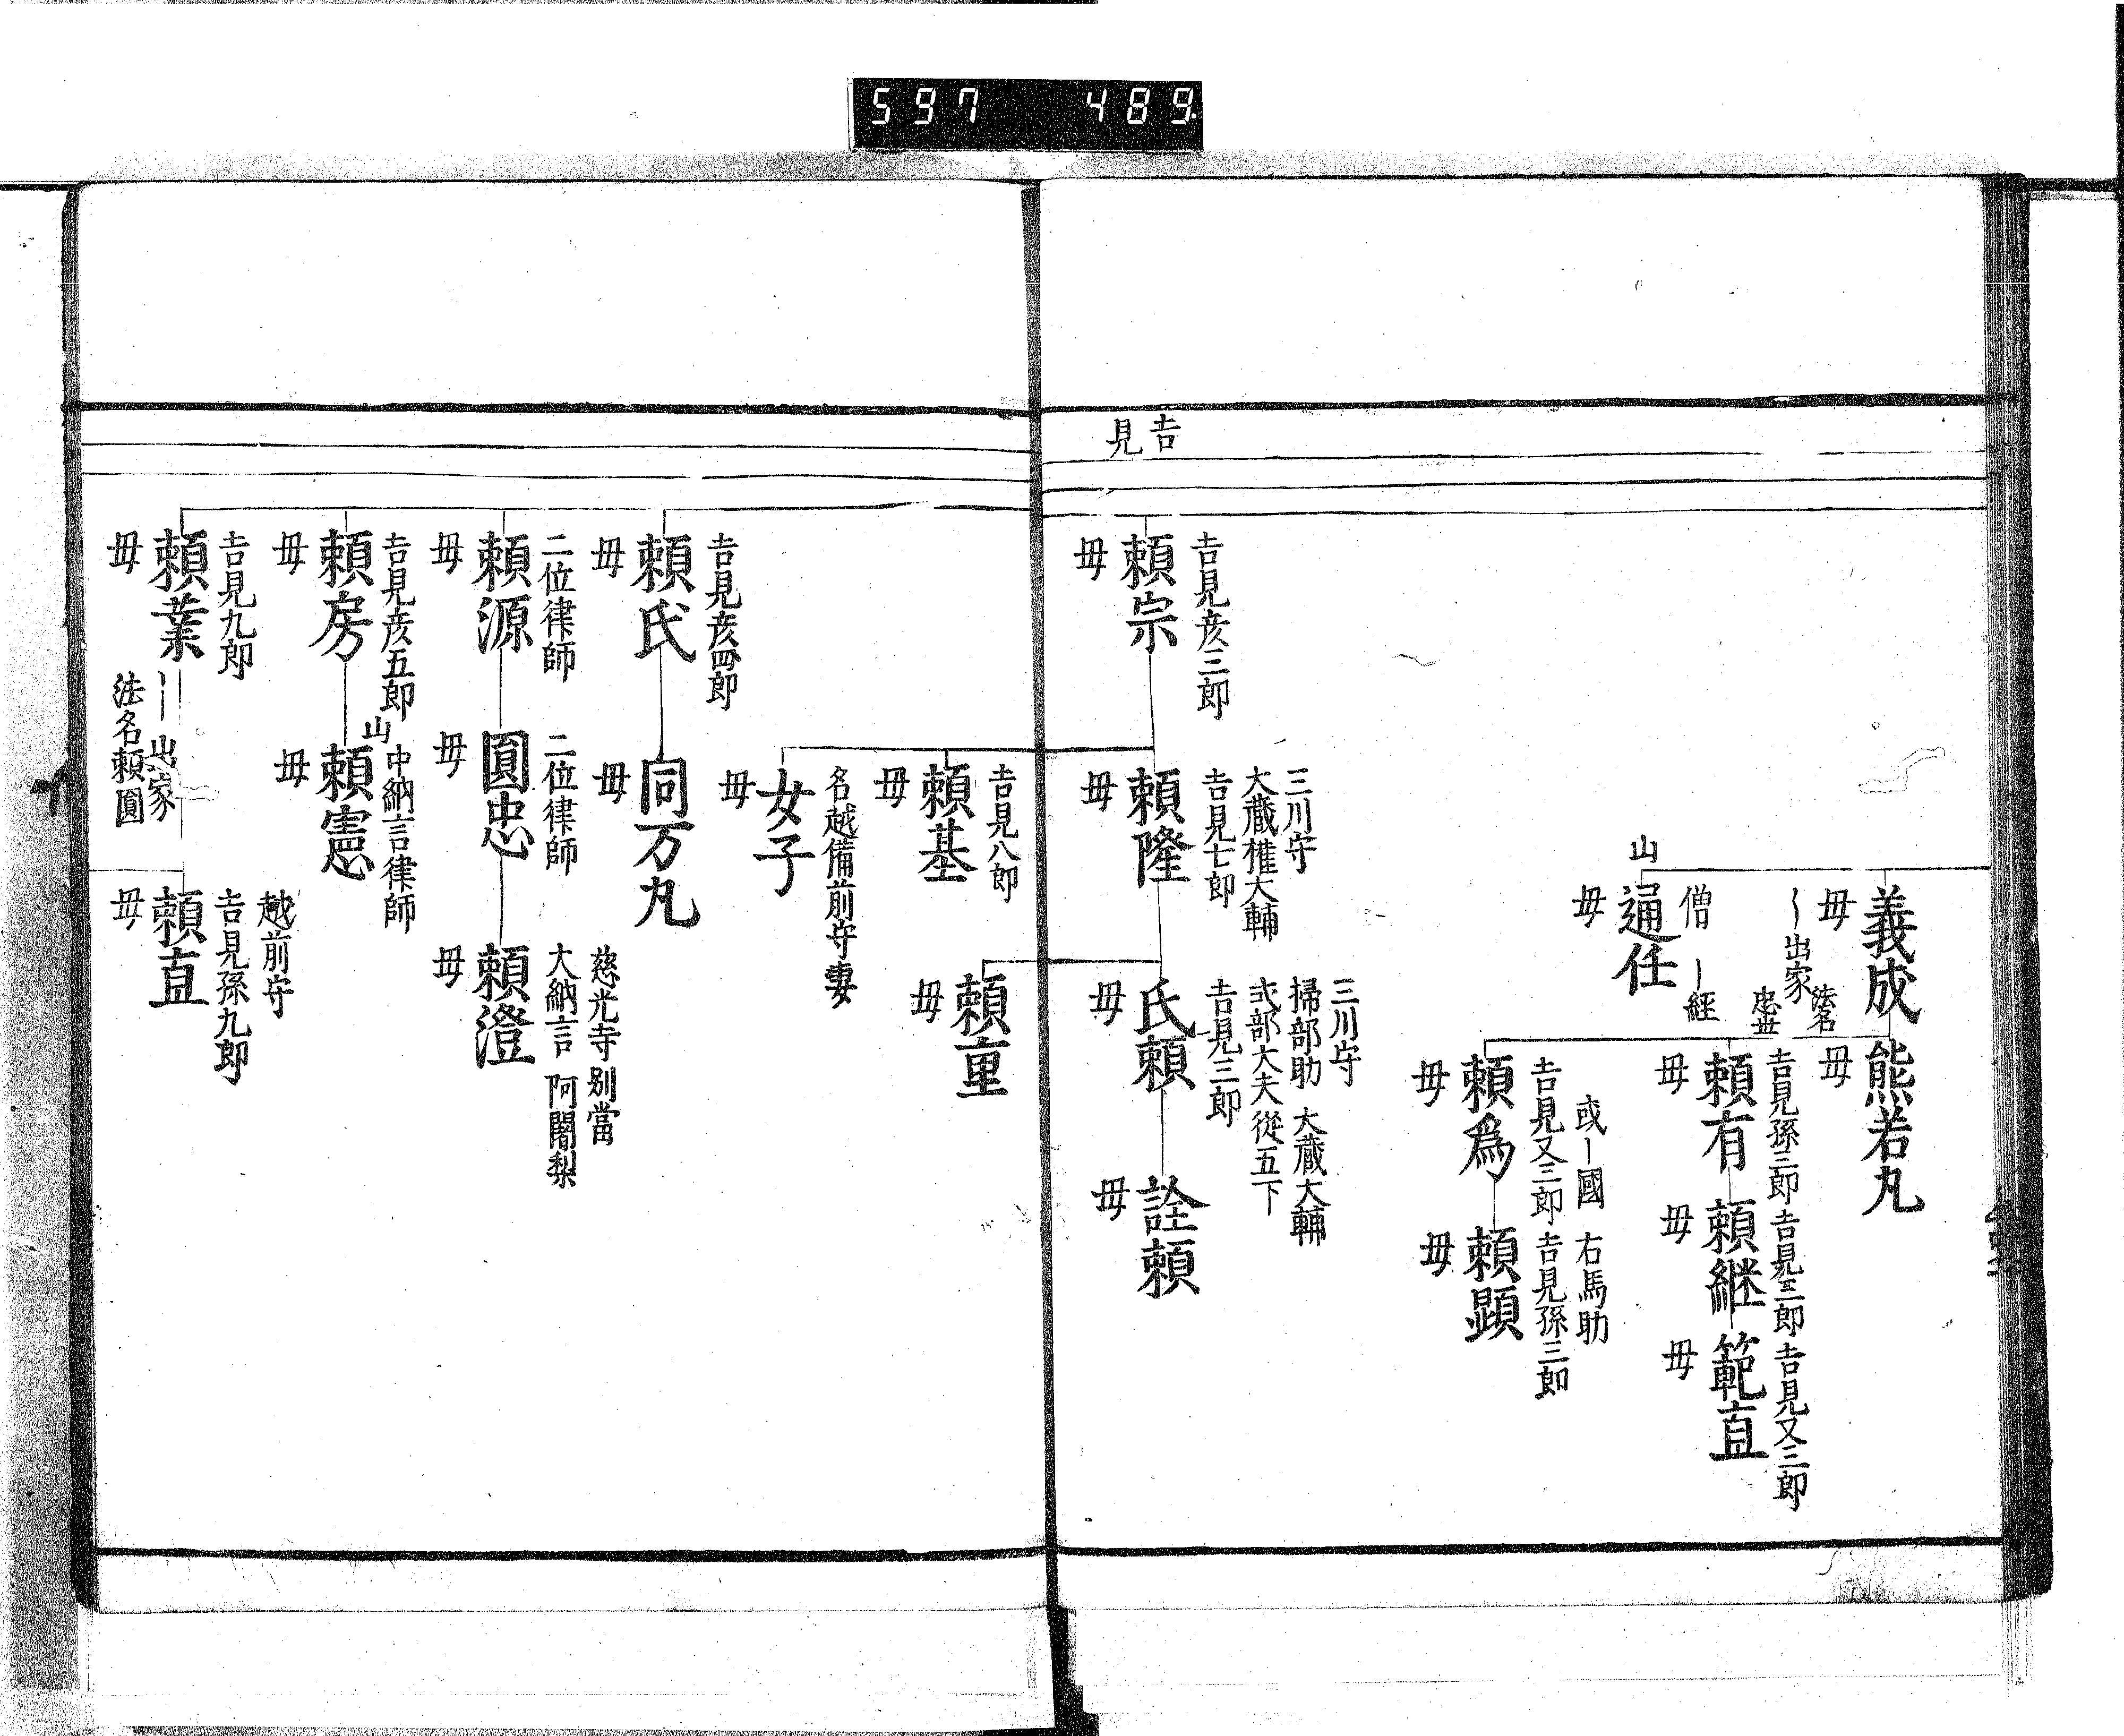 597 489
吉見
義成
毋
〡出家
法名
忠世
熊若丸
毋
吉見孫三郎
頼有
毋
吉見三郎
頼継
毋
吉見又三郎
範直
毋
山
僧 〡経
通任
毋
或〡國
吉見又三郎
頼為
毋
右馬助
吉見孫三郎
頼顕
毋
吉見彦三郎
頼宗
毋
三川守
大蔵権大輔
吉見七郎
頼隆
毋
三川守
掃部助 大蔵大輔
式部大夫従五下
吉見三郎
氏頼
毋
詮頼
毋
頼重
毋
吉見八郎
頼基
毋
名越備前守妻
女子
毋
吉見彦四郎
頼氏
毋
同万丸
毋
二位律師
頼源
毋
二位律師
圓忠
毋
慈光寺別當
大納言 阿闍梨
頼澄
毋
吉見彦五郎
頼房
毋
山
中納言律師
頼憲
毋
吉見九郎
頼業
毋
〡出家
法名頼圓
越前守
吉見孫九郎
頼直
毋